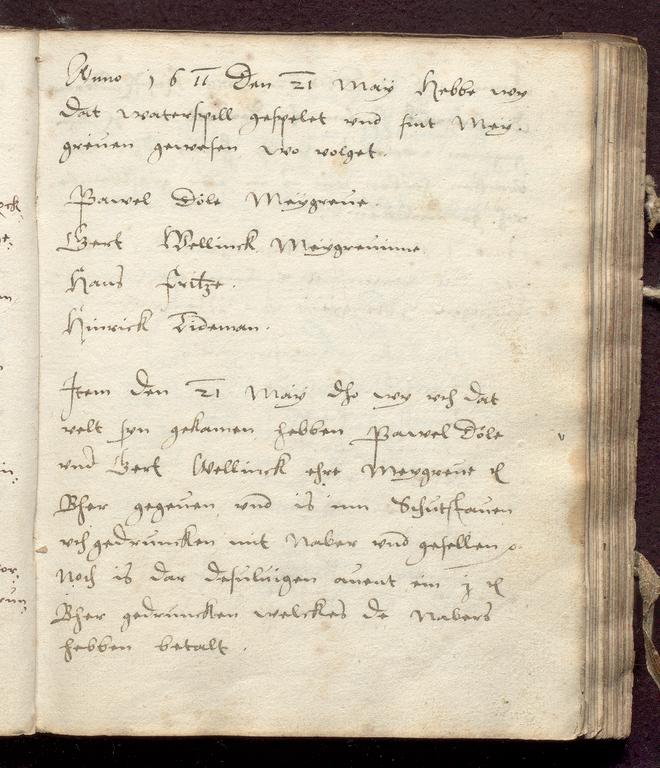 Anno 1611 Den 21 May Hebbe wy
dat waterspill gespelet vnd sint Mey
greuen gewesen wo volget.
Pawel Döle Meygreue.
Gert Wellinck Meygreuinne
Hans Fritze.
Hinrick Tideman.
Item den 21 May dho wy vth dat
velt syn gekamen hebben Pawel Döle
vnd Gert Wellinck ehre Meygreue
Bher gegeuen vnd is im Schutstauen
vth gedruncken mit Naber vnd gesellen
Noch is dar desuluigen auent ein
Bher gedruncken welckes de Nabers
hebben betalt.